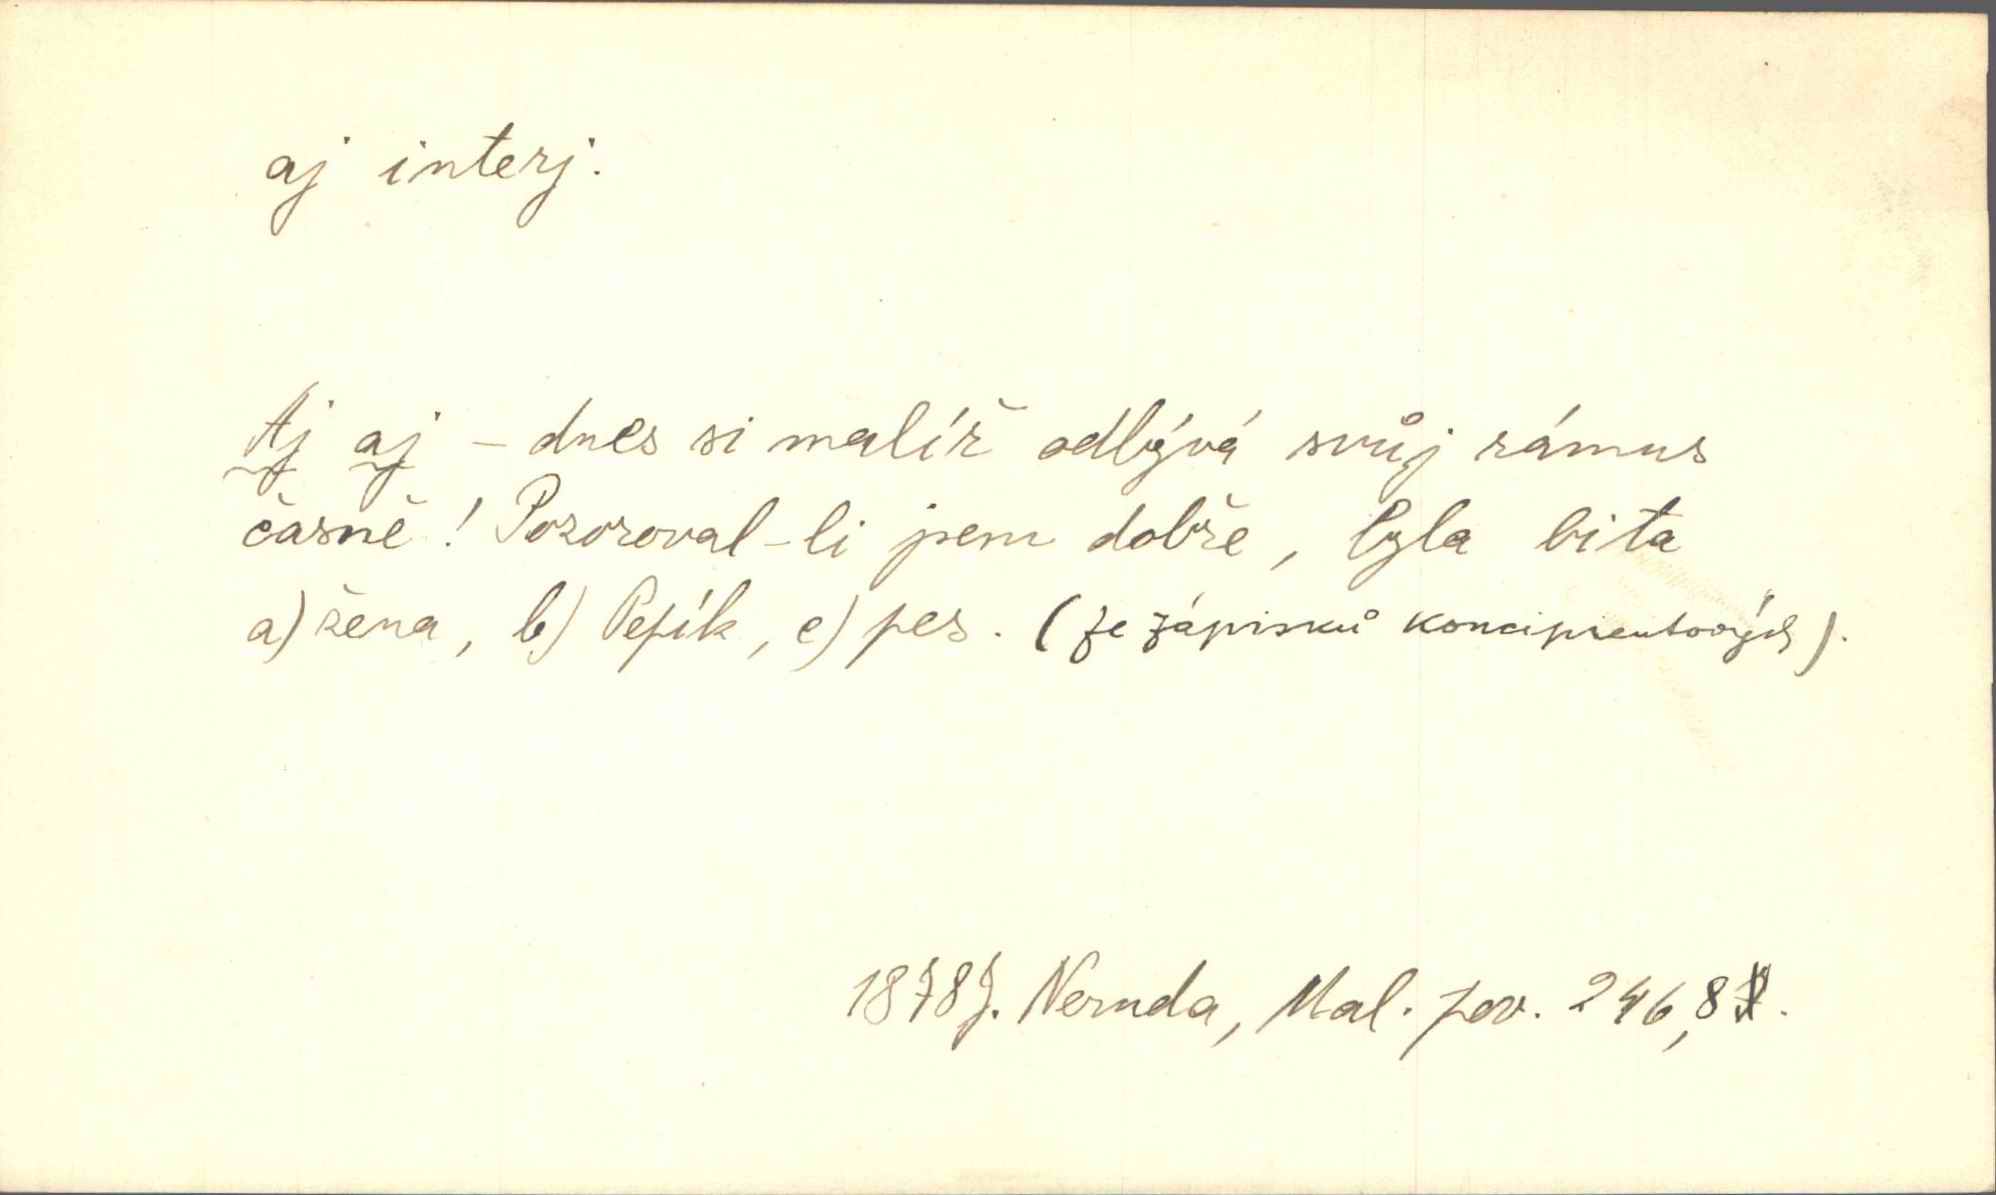 aj interj.
Aj aj – dnes si malíř odbývá svůj rámus
časně! Pozoroval-li jsem dobře, byla bita
a) žena, b) Pepík, c) pes. (Ze zápisků koncipientových).
1878 J. Neruda, Mal. pov. 246,8